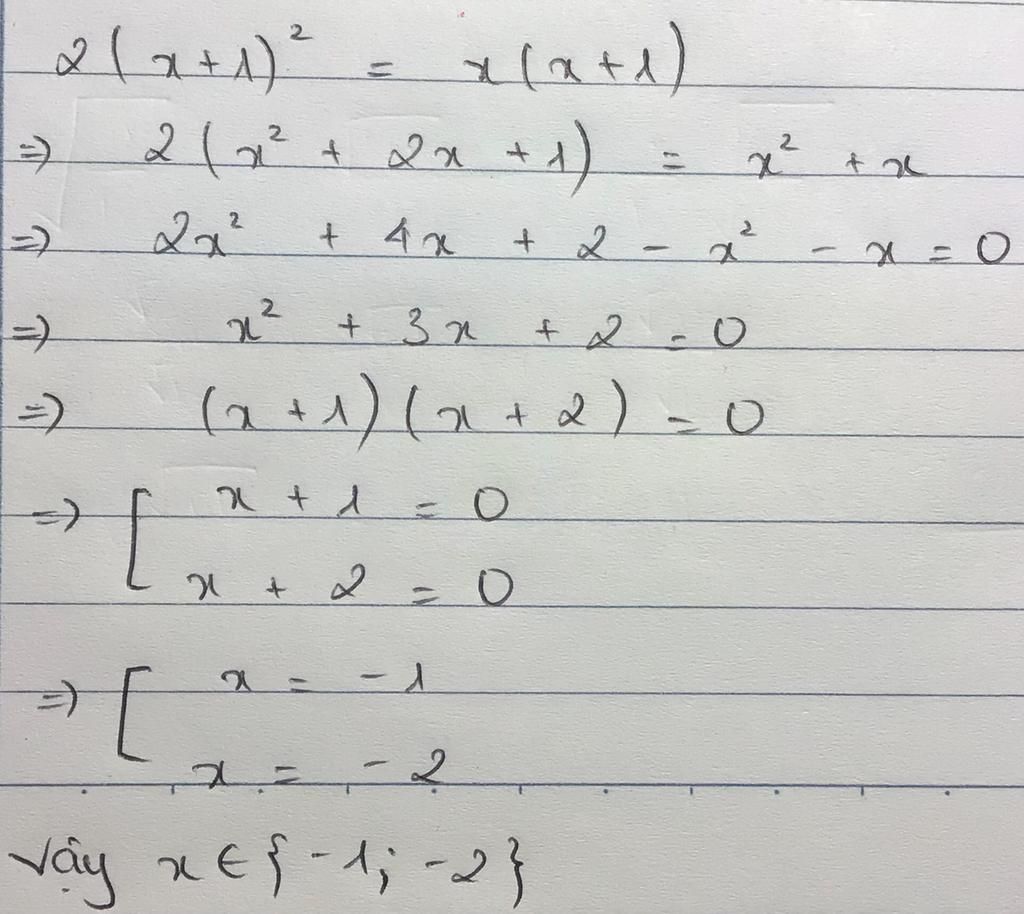 2(x+1)² = x(x+1)
=> 2(x² + 2x + 1) = x² + x
=> 2x² + 4x + 2 - x² - x = 0
=> x² + 3x + 2 = 0
=> (x + 1)(x + 2) = 0
=> [ x + 1 = 0
x + 2 = 0
=> [ x = -1
x = -2
Vậy x ∈ {-1; -2}